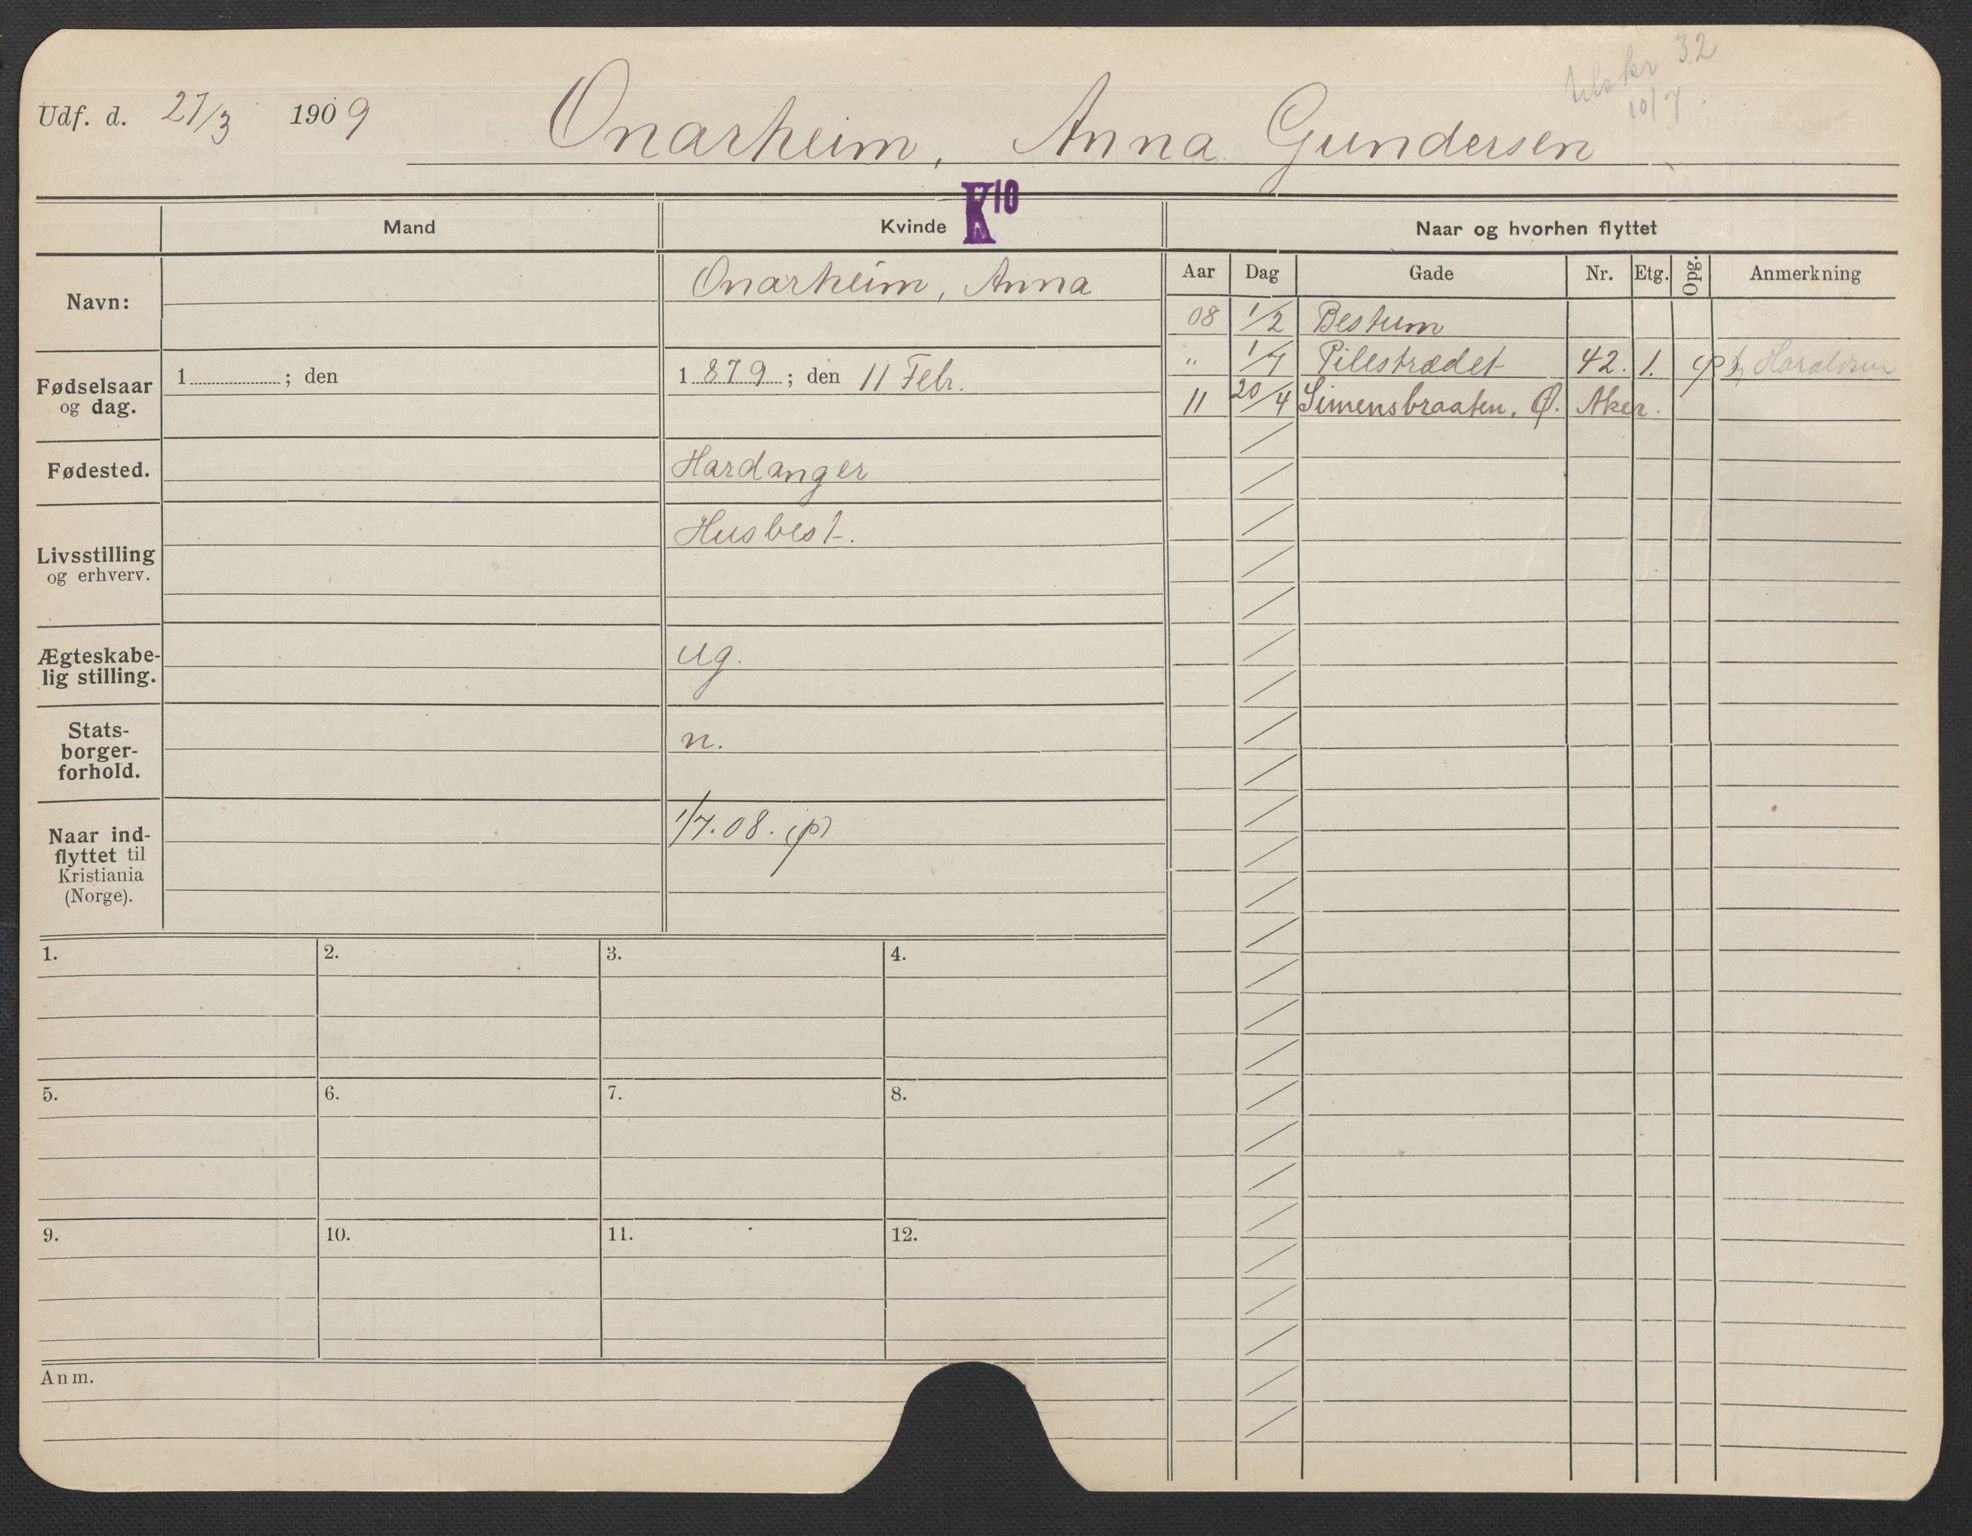 32
10/7
Udf. d. 27/3 1909 Onarheim, Anna Gundersen
K10
Mand Kvinde Naar og hvorhen flyttet
Aar Dag Gade Nr. Etg. Opg. Anmerkning
Navn: Onarheim, Anna
08 1/2 Bestum
" 1/7 Pilestrædet 42. 1. Haraldsen
11 20/4 Simensbraaten, Ø. Aker.
Fødselsaar og dag. 1 ; den 1 879 ; den 11 Febr.
Fødested. Hardanger
Livsstilling og erhverv. Husbest.
Ægteskabe-
lig stilling. ug.
Stats-
borger-
forhold. n.
Naar ind-
flyttet til
Kristiania
(Norge). 1/7.08. (p)
1. 2. 3. 4.
5. 6. 7. 8.
9. 10. 11. 12.
Anm.